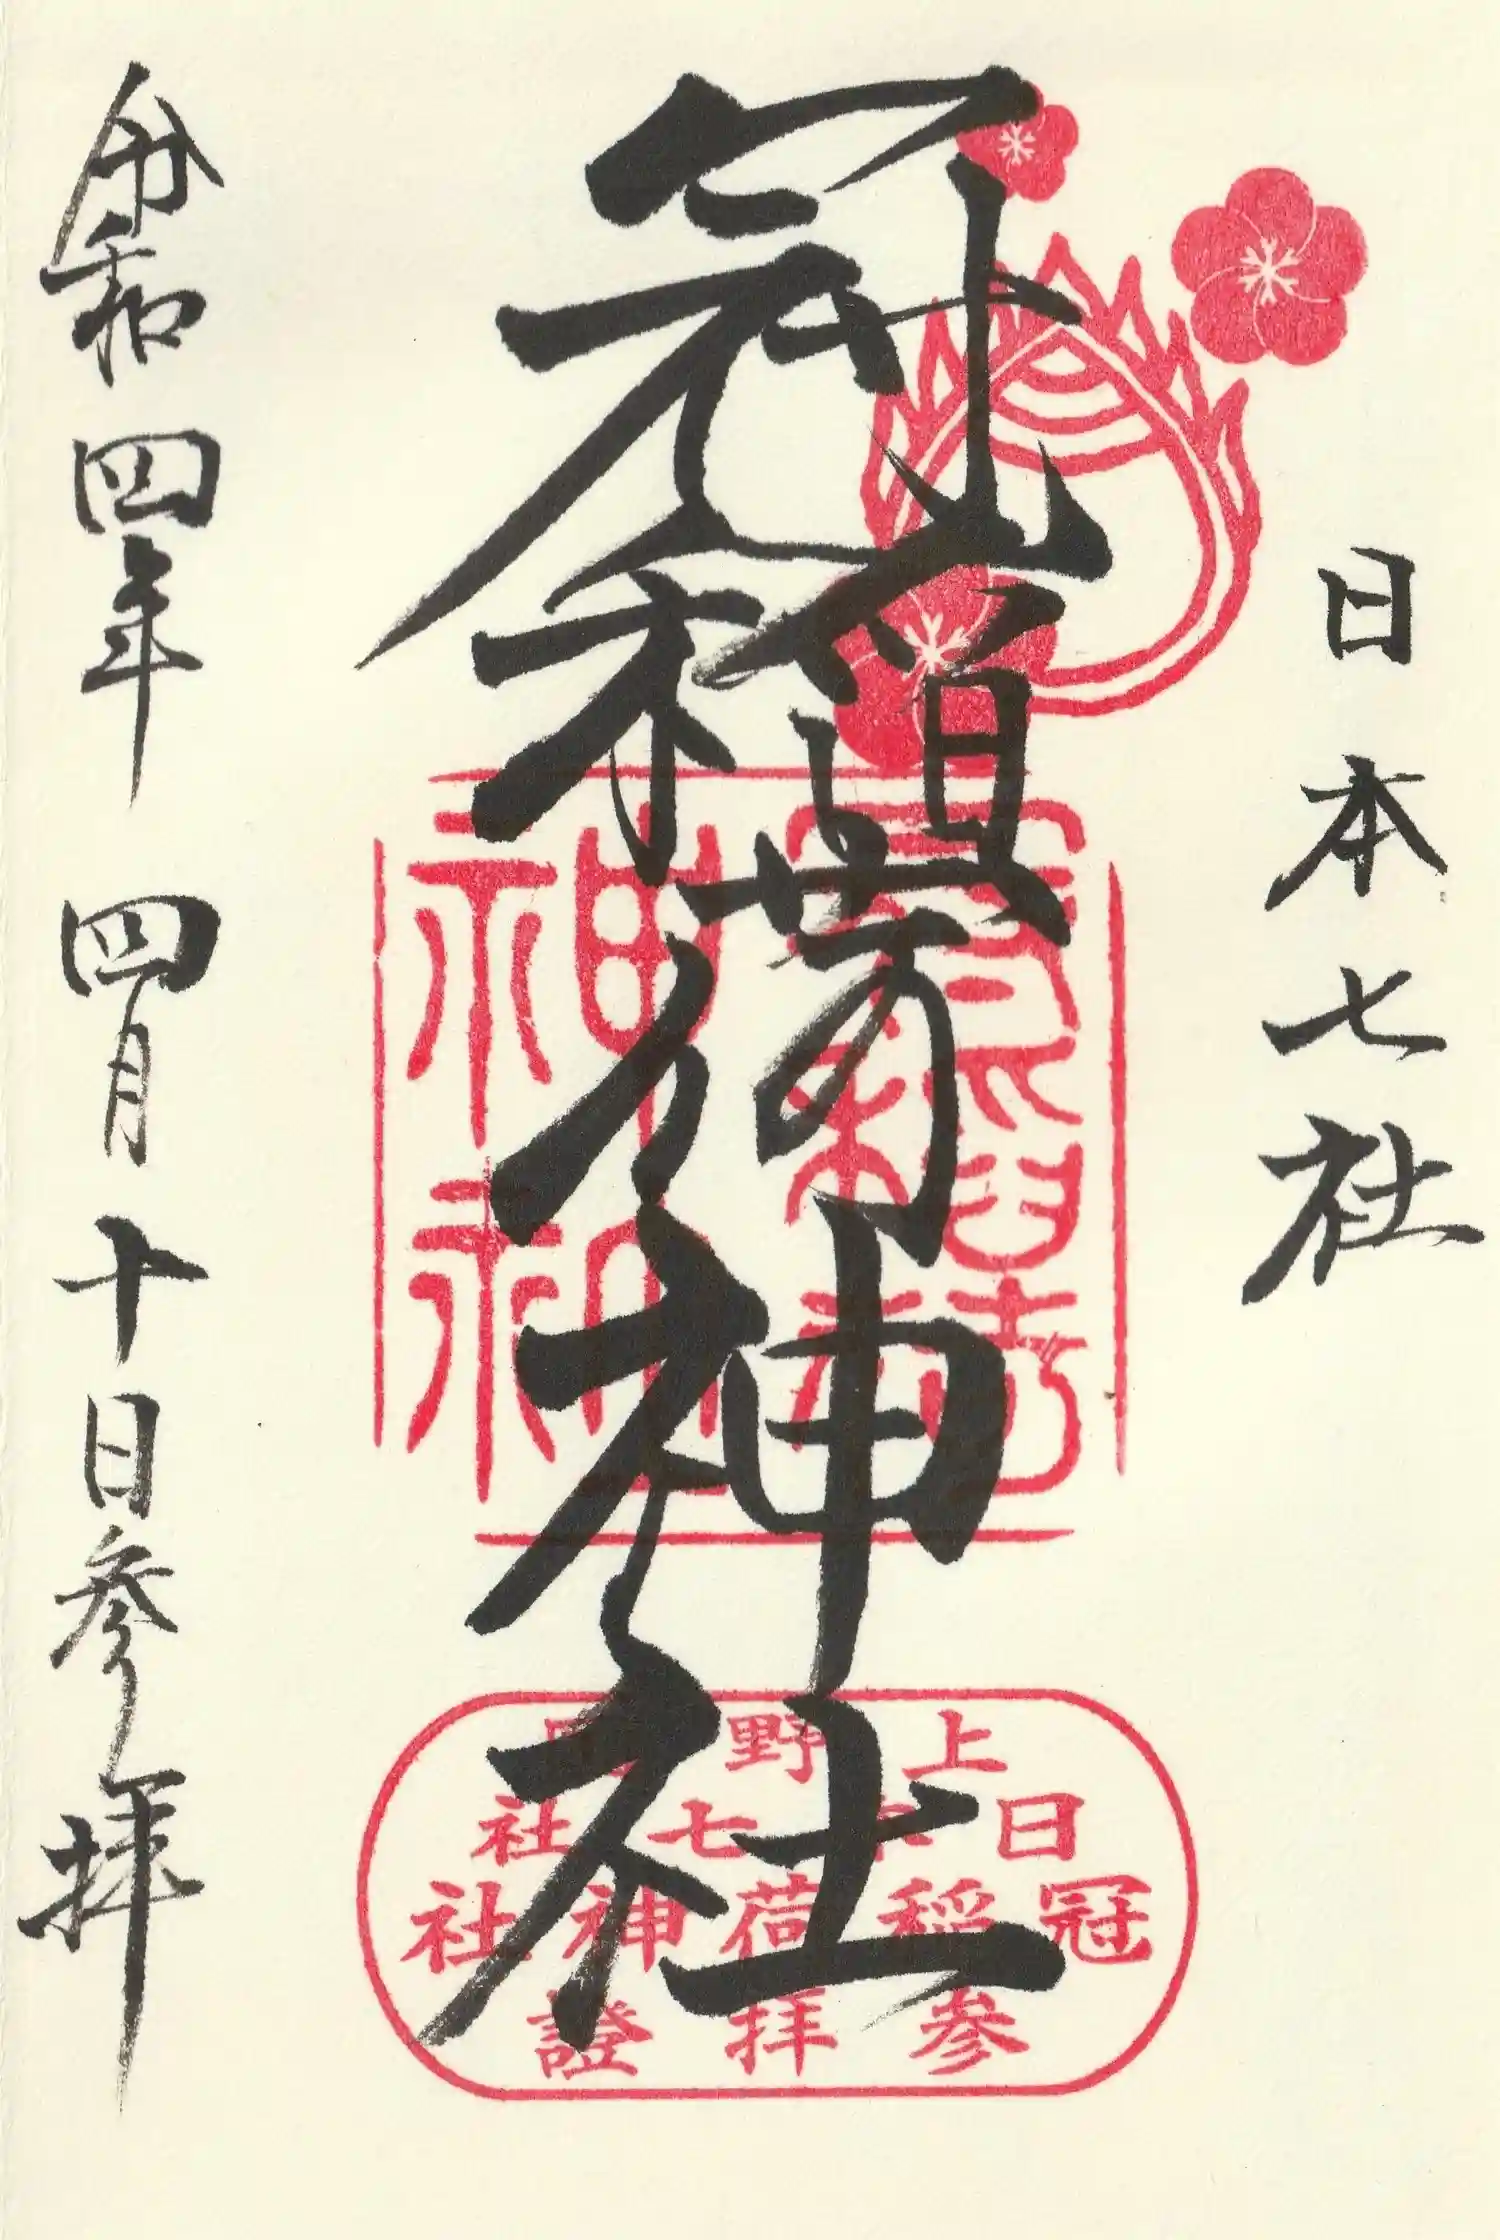 日本七社
冠稲荷神社
令和四年四月十日参拝
上野國
日本七社
冠稲荷神社
参拝證